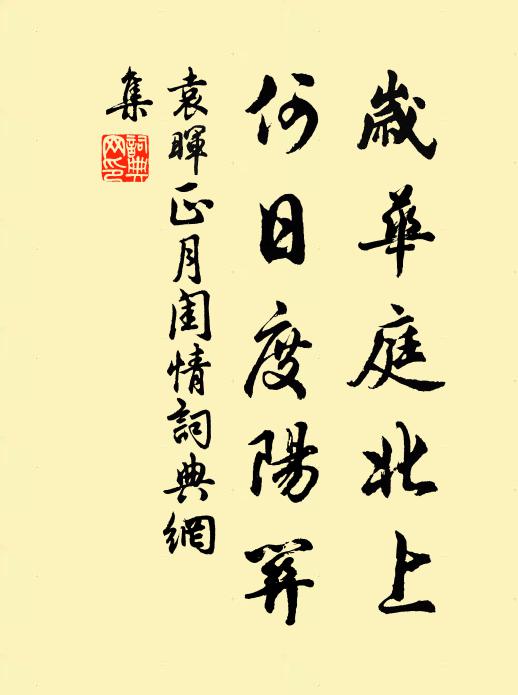 歲華庭北上
何日度陽關
袁暉正月閨情詞典網
集
詞典
网印